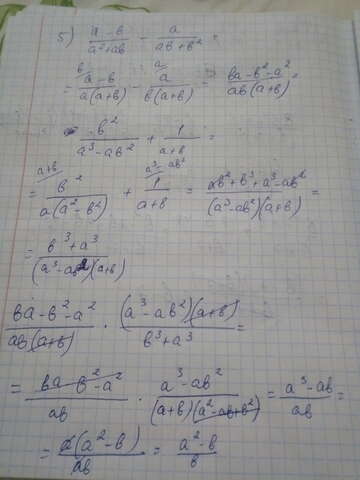 5) (a - b)/(a² + ab) - a/(ab + b²) =
= (a - b)/(a(a + b)) - a/(b(a + b)) = (ba - b² - a²)/(ab(a + b)) =
b²/(a³ - ab²) + 1/(a + b) =
= b²/(a(a² - b²)) + 1/(a + b) = (ab² + b³ + a³ - ab²)/((a³ - ab²)(a + b)) =
= (b³ + a³)/((a³ - ab²)(a + b))
(ba - b² - a²)/(ab(a + b)) · ((a³ - ab²)(a + b))/(b³ + a³) =
= (ba - b² - a²)/(ab) · (a³ - ab²)/((a + b)(a² - ab + b²)) = (a³ - ab)/(ab) =
= a(a² - b)/(ab) = (a² - b)/b